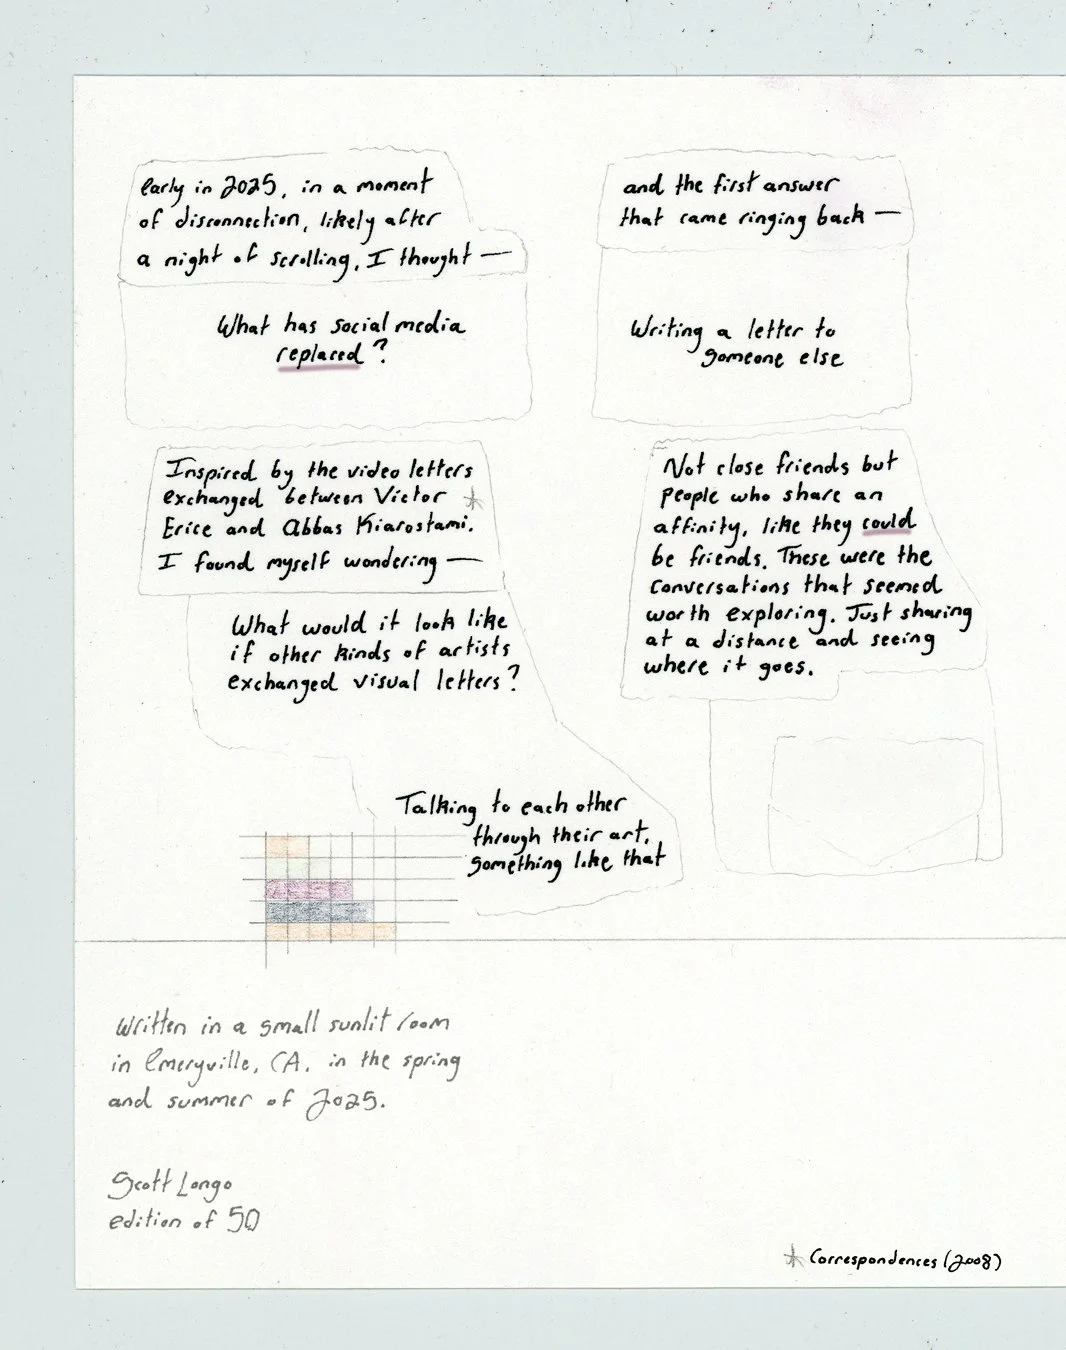 early in 2025, in a moment
of disconnection, likely after
a night of scrolling, I thought —
What has social media
replaced?
and the first answer
that came ringing back —
Writing a letter to
someone else
Inspired by the video letters
exchanged between Victor *
Erice and Abbas Kiarostami.
I found myself wondering —
What would it look like
if other kinds of artists
exchanged visual letters?
Talking to each other
through their art,
something like that
Not close friends but
people who share an
affinity, like they could
be friends. These were the
conversations that seemed
worth exploring. Just sharing
at a distance and seeing
where it goes.
Written in a small sunlit room
in Emeryville, CA, in the spring
and summer of 2025.
Scott Longo
edition of 50
* Correspondences (2008)